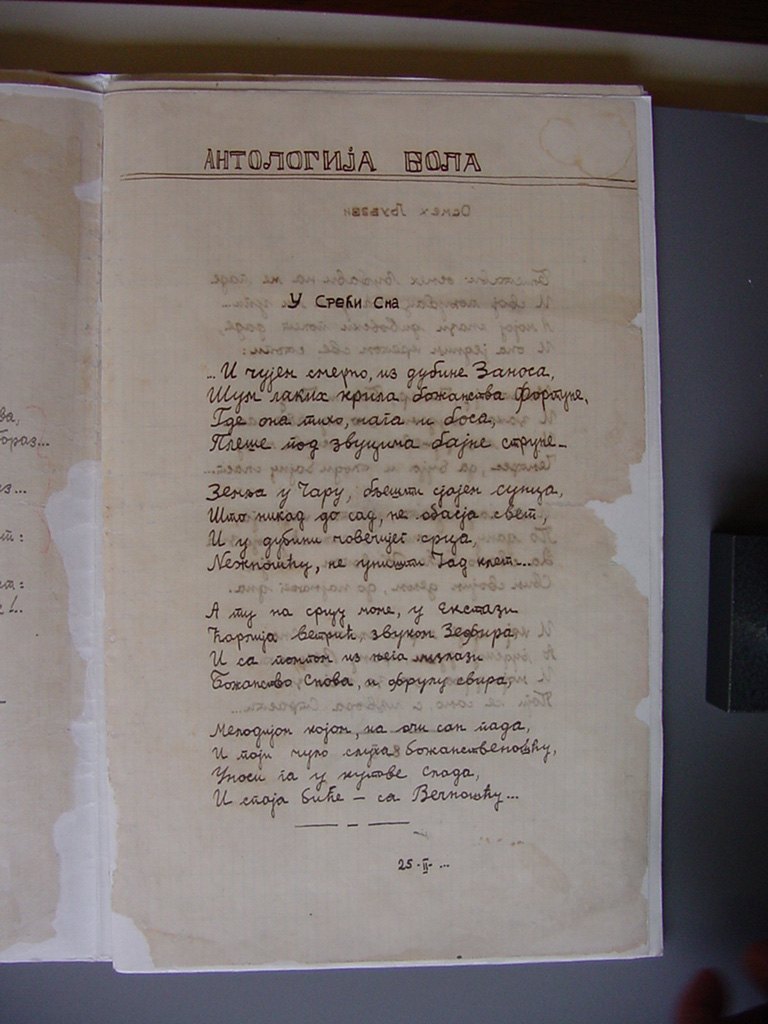 ва,
браз...
из...
ет:
ет:
АНТОЛОГИЈА БОЛА
У Срећи Сна
...И чујем смерно, из дубине Заноса,
Шум лаких крила божанства Фортуне,
Где она тихо, нага и боса,
Плеше под звуцима бајне струне...
Зенка у Чару, бљешти сјајем сунца,
Што никад до сад, не обасја свет,
И у дубини човечијег срца,
Нежношћу, не уништи Јад клет...
А ту на срцу моме, у Екстази
Ћарлија ветрић, звуком Зефира,
И са њом из њега излази
Божанство Снова, и фрулу свира,
Мелодијом којом, на очи сан пада,
И поји чуло слуха божанственошћу,
Уноси га у кутове Склада,
И спаја Биће – са Вечношћу...
25·II·...